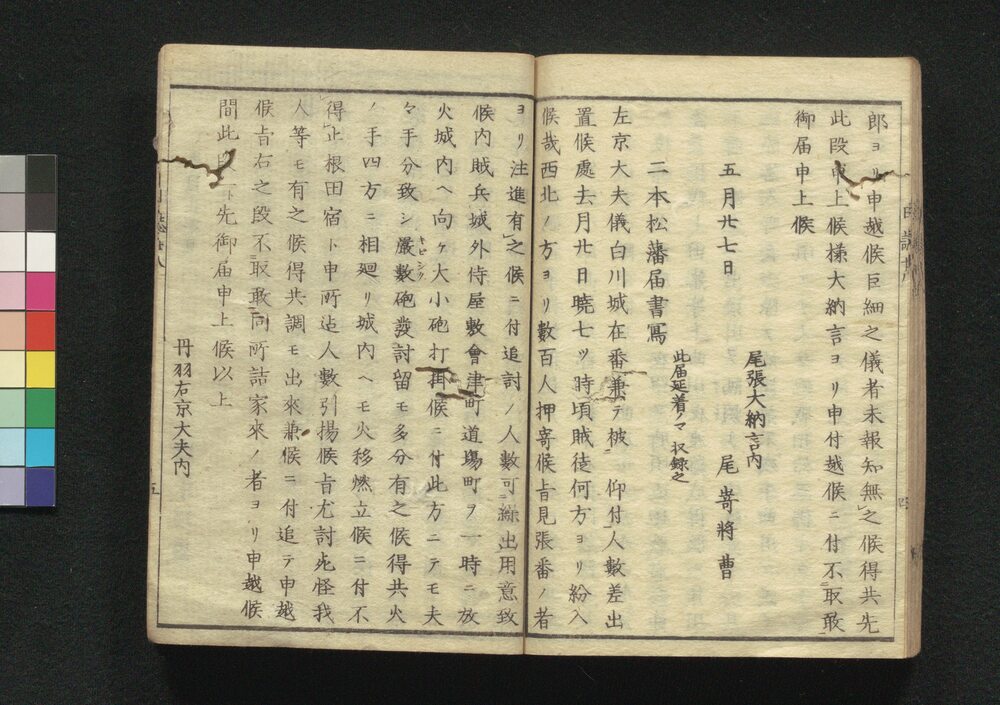 郎ヨリ申越候巨細之儀者未報知無之候得共先
此段申上候様大納言ヨリ申付越候ニ付不取敢
御届申上候
尾張大納言内
五月廿七日　尾嵜將曹
二本松藩届書寫
此届延着ノマヽ収録之
左京大夫儀白川城在番兼テ被仰付人數差出
置候處去月廿日曉七ツ時頃賊徒何方ヨリ紛入
候哉西北ノ方ヨリ數百人押寄候旨見張番ノ者
ヨリ注進有之候ニ付追討ノ人數可繰出用意致
候内賊兵城外侍屋敷會津町道場町ヲ一時ニ放
火城内ヘ向ケ大小砲打掛候ニ付此方ニテモ夫
々手分致シ嚴敷砲發討留モ多分有之候得共火
キビシク
ノ手四方ニ相廻リ城内ヘモ火移燃立候ニ付不
得止根田宿ト申所迄人數引揚候旨尤討死怪我
人等モ有之候得共調モ出來兼候ニ付追テ申越
候旨右之段不取敢同所詰家來ノ者ヨリ申越候
間此 先御届申上候以上
丹羽右京大夫内
四
五